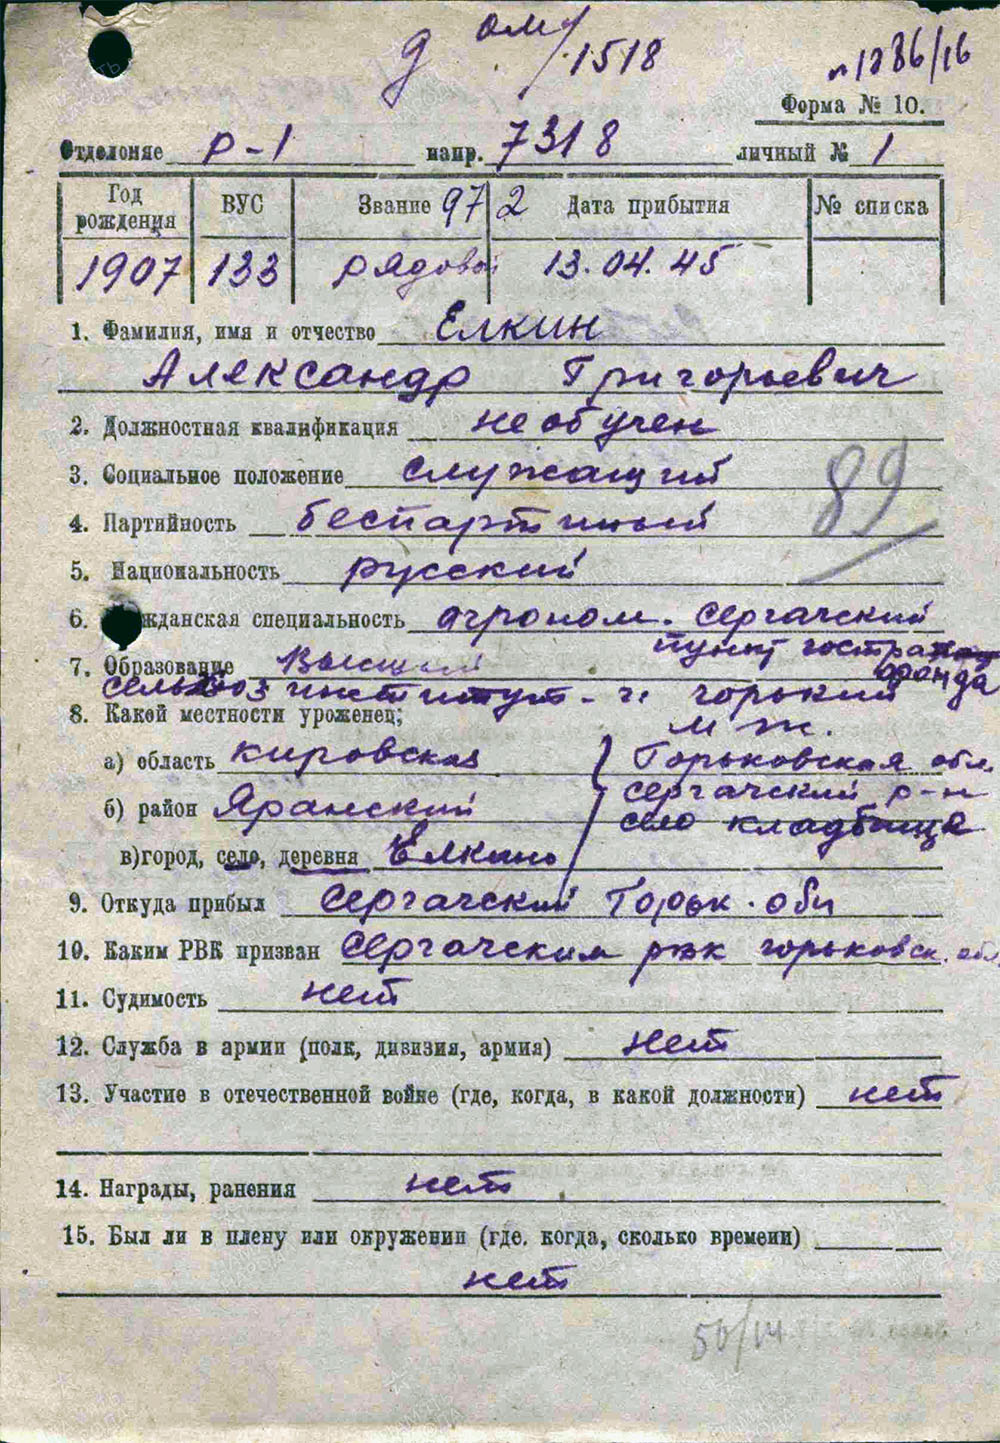 1518
п 1286/16
Форма № 10.
Отделение р-1 напр. 7318 личный № 1
Год рождения ВУС Звание 97 2 Дата прибытия № списка
1907 133 рядовой 13.04.45
1. Фамилия, имя и отчество Елкин
Александр Григорьевич
2. Должностная квалификация не обучен
3. Социальное положение служащий
89
4. Партийность беспартийный
5. Национальность русский
6. жданская специальность агроном. Сергачский
пункт госстрах
фонда
7. Образование Высшее
сельхоз институт - г. Горький
8. Какой местности уроженец;
м ж.
а) область Кировская Горьковская обл.
б) район Яранский Сергачский р-н
село кладбища
в)город, село, деревня Елкино
9. Откуда прибыл Сергачский Горьк. обл
10. Каким РВК призван Сергачским рвк горьковск. обл.
11. Судимость нет
12. Служба в армии (полк, дивизия, армия) нет
13. Участие в отечественной войне (где, когда, в какой должности) нет
14. Награды, ранения нет
15. Был ли в плену или окружении (где. когда, сколько времени)
нет
50/14